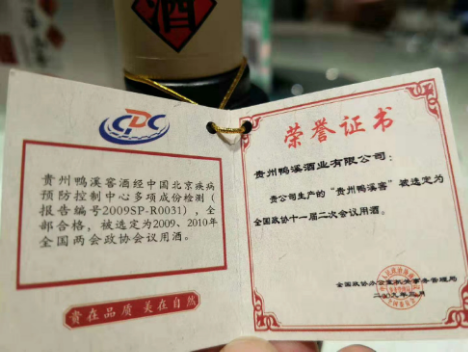 酒
CDC
贵州鸭溪窖酒经中国北京疾病
预防控制中心多项成份检测（
报告编号2009SP-R0031），全
部合格，被选定为2009、2010年
全国两会政协会议用酒。
贵在品质 美在自然
荣誉证书
贵州鸭溪酒业有限公司：
贵公司生产的“贵州鸭溪窖”被选定为
全国政协十一届二次会议用酒。
全国政协办公室机关事务管理局